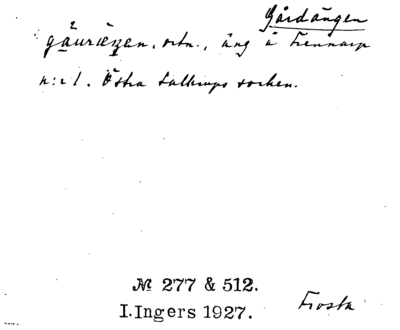 Gårdängen
gäuräŋen, ortn., äng å Trennarp
n:r 1. Östra Sallerups socken.
№ 277 & 512.
I. Ingers 1927.
Frosta